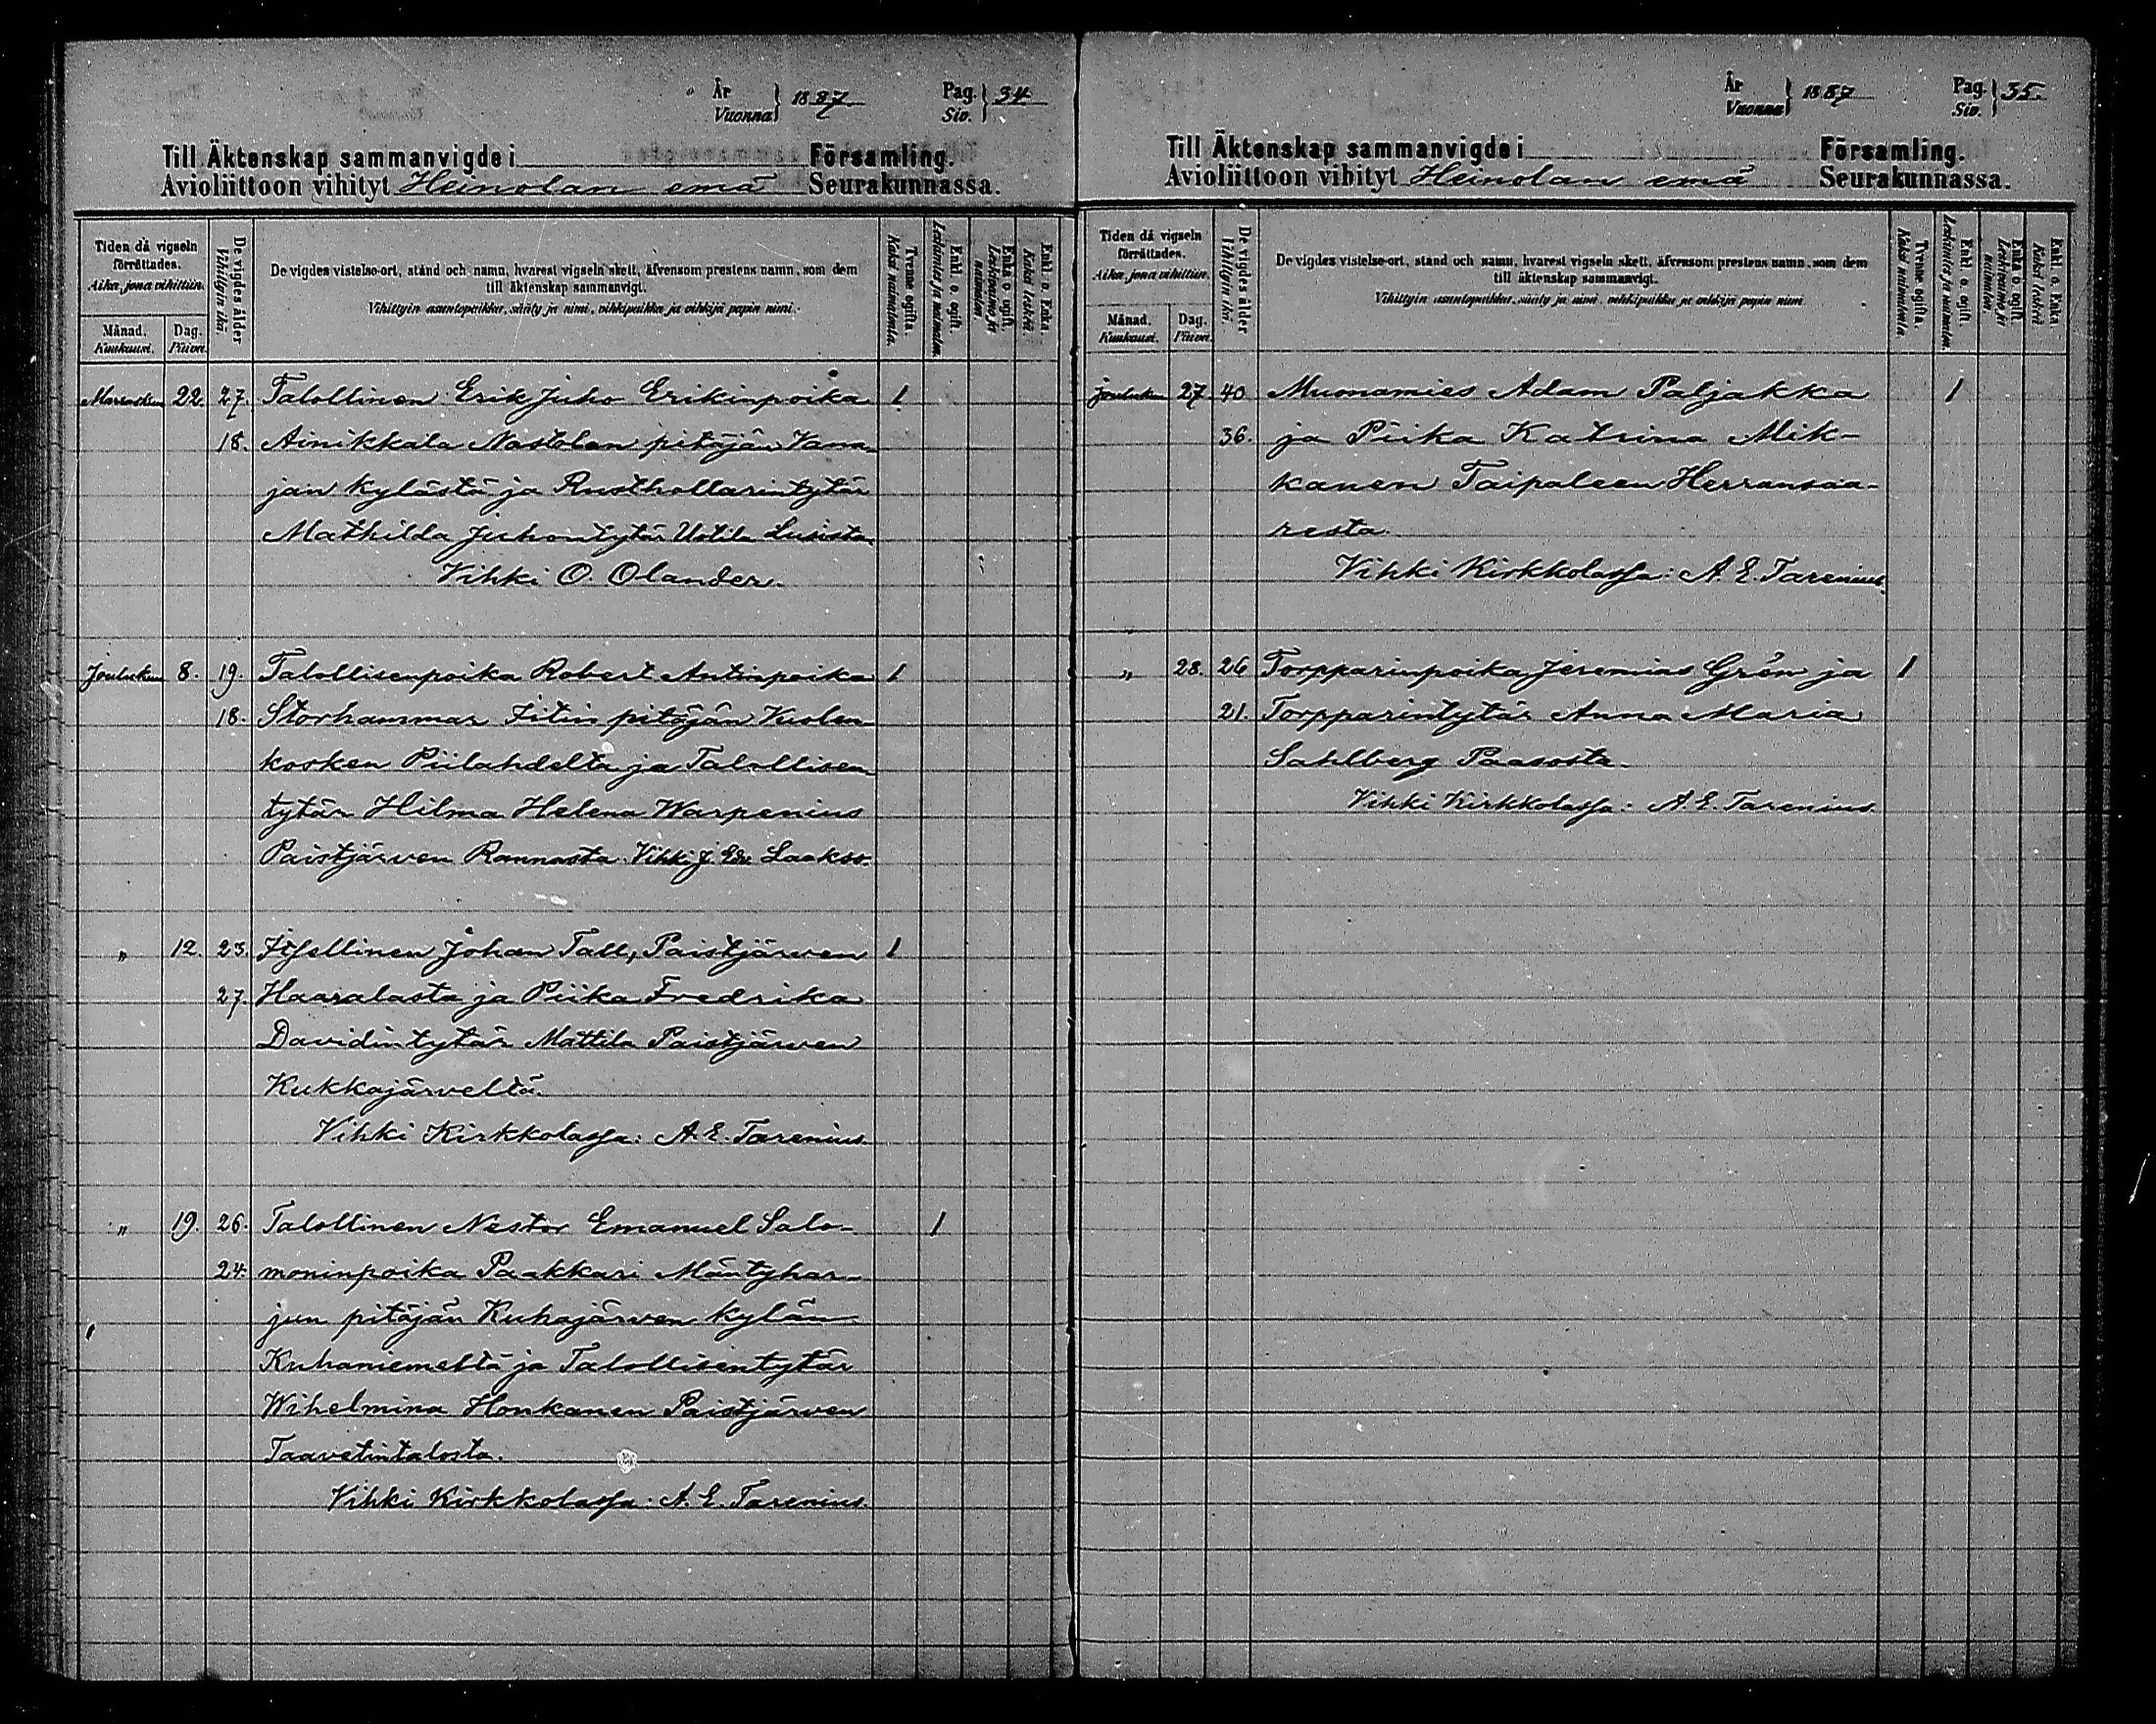 År
Vuonna } 1887. Pag.
Siv. } 34
Till Äktenskap sammanvigde i Församling.
Avioliittoon vihityt Heinolan emä Seurakunnassa.
Tiden då vigseln förrättades.
Aika, jona vihittiin.
Månad.
Kuukausi.
Dag.
Päivä.
De vigdes ålder
Vihittyin ikä.
De vigdes vistelse-ort, stånd och namn, hvarest vigseln skett, äfvensom prestens namn, som dem
till äktenskap sammanvigt.
Vihittyin asuntopaikka, sääty ja nimi, vihkipaikka ja vihkijä papin nimi.
Tvenne ogifta.
Kaksi naimatonta.
Enkl. o. ogift.
Leskimies ja naimaton.
Enka o. ogift.
Leskivaimo ja naimaton.
Enkl. o. Enka.
Kaksi leskeä.
Marraskuu 22. 27. Talollinen Erik Juho Erikinpoika 1
18. Ainikkala Nastolan pitäjän Vana-
jan kylästä ja Rusthollarintytär
Mathilda Juhontytär Uotila Lusista.
Vihki O. Olander.
Joulukuu 8. 19. Talollisenpoika Robert Antinpoika 1
18. Storhammar Iitin pitäjän Kuolen-
kosken Piilahdelta ja Talollisen
tytär Hilma Helena Warpenius
Paistjärven Rannasta. Vihki J. Edv. Laakso.
" 12. 23. Itsellinen Johan Tall, Paistjärven 1
27. Haaralasta ja Piika Fredrika
Davidintytär Mattila Paistjärven
Kukkajärveltä.
Vihki Kirkkolassa: A. E. Tarenius
" 19. 26. Talollinen Nestor Emanuel Salo- 1
24. moninpoika Paakkari Mäntyhar-
jun pitäjän Kuhajärven kylän
Kuhaniemeltä ja Talollisentytär
Wihelmina Honkanen Paistjärven
Taavetintalosta.
Vihki Kirkkolassa: A. E. Tarenius
År
Vuonna } 1887 Pag.
Siv. } 35.
Till Äktenskap sammanvigde i Församling.
Avioliittoon vihityt Heinolan emä Seurakunnassa.
Tiden då vigseln förrättades.
Aika, jona vihittiin.
Månad.
Kuukausi.
Dag.
Päivä.
De vigdes ålder
Vihittyin ikä.
De vigdes vistelse-ort, stånd och namn, hvarest vigseln skett, äfvensom prestens namn, som dem
till äktenskap sammanvigt.
Vihittyin asuntopaikka, sääty ja nimi, vihkipaikka ja vihkijä papin nimi.
Tvenne ogifta.
Kaksi naimatonta.
Enkl. o. ogift.
Leskimies ja naimaton.
Enka o. ogift.
Leskivaimo ja naimaton.
Enkl. o. Enka.
Kaksi leskeä.
Joulukuu 27. 40 Muonamies Adam Paljakka 1
36. ja Piika Katrina Mik-
kanen Taipaleen Herransaa-
resta.
Vihki Kirkkolassa: A. E. Tarenius.
" 28. 26 Torpparinpoika Jeremias Grön ja 1
21. Torpparintytär Anna Maria
Sahlberg Paasosta.
Vihki Kirkkolassa: A. E. Tarenius.